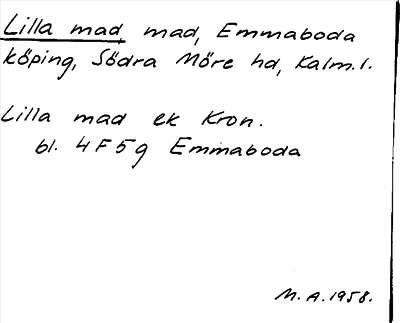 Lilla mad, mad, Emmaboda
köping, Södra Möre hd, Kalm.l.
Lilla mad ek Kron.
bl. 4F5g Emmaboda
M.A.1958.